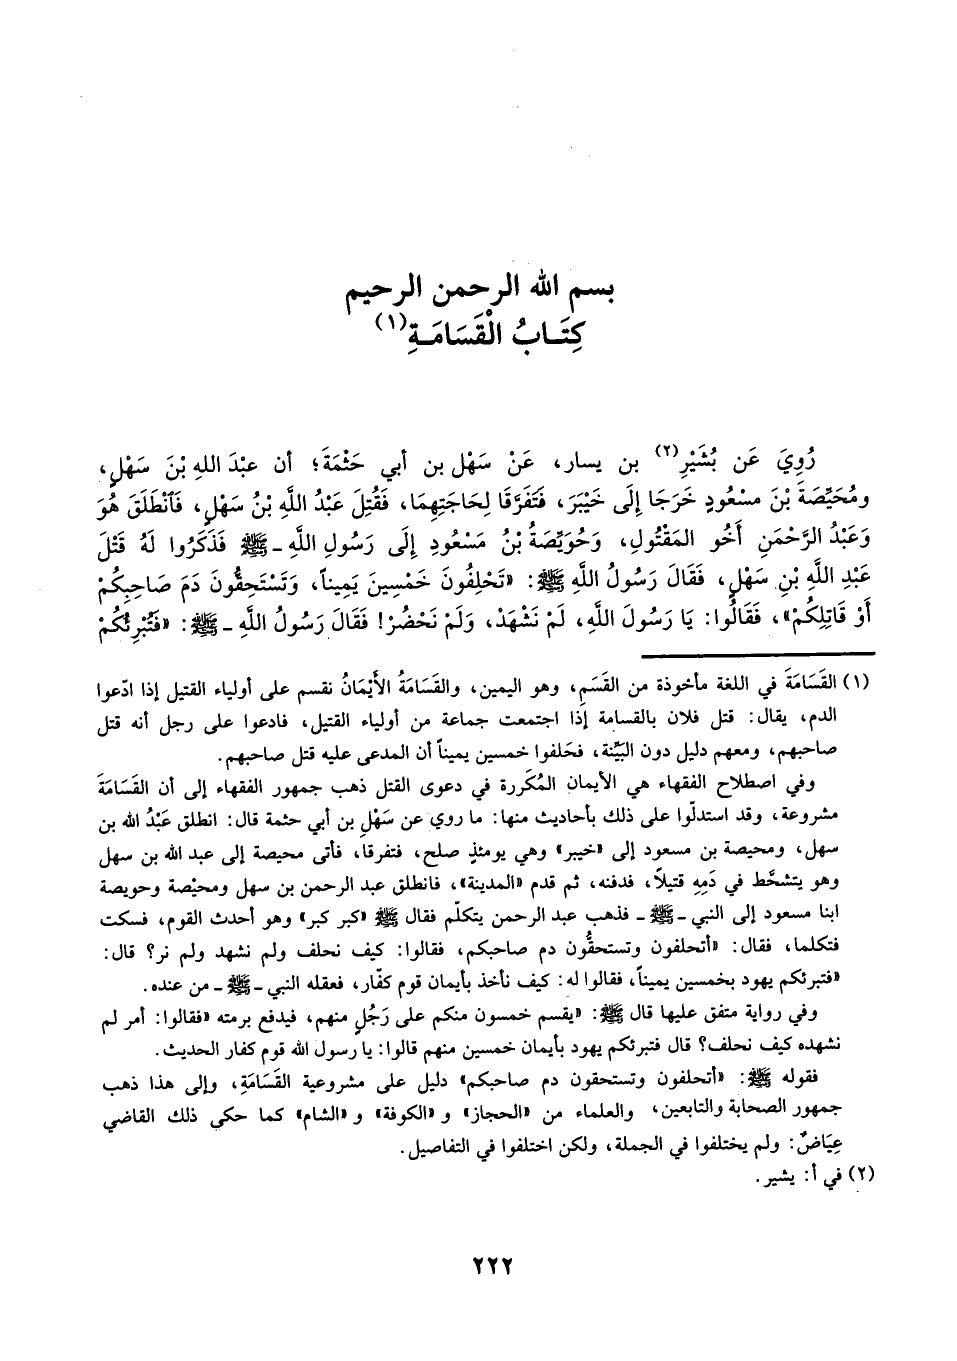 بسم الله الرحمن الرحيم
كِتَـابُ الْقَسَامَـةِ(١)
رُوِيَ عَن بُشَيْرِ(٢) بن يسار، عَنْ سَهْل بن أبي حَثْمَةَ؛ أن عبْدَ اللهِ بْنَ سَهْلٍ،
ومُحَيِّصَةَ بْنَ مسْعُودٍ خَرَجَا إِلَى خَيْبَرَ، فَتَفَرَّقَا لِحَاجَتِهِمَا، فَقُتِلَ عَبْدُ اللَّهِ بْنُ سَهْلٍ، فَٱنْطَلَقَ هُوَ
وَعَبْدُ الرَّحْمَنِ أَخُو المَقْتُولِ، وَحُوَيِّصَةُ بْنُ مَسْعُودٍ إِلَى رَسُولِ اللَّهِ ـ ﷺ فَذَكَرُوا لَهُ قَتْلَ
عَبْدِ اللَّهِ بْنِ سَهْلٍ، فَقَالَ رَسُولُ اللَّهِ ﷺ: «تَحْلِفُونَ خَمْسِينَ يَمِيناً، وَتَسْتَحِقُّونَ دَمَ صَاحِبِكُمْ
أَوْ قَاتِلِكُمْ»، فَقَالُوا: يَا رَسُولَ اللَّهِ، لَمْ نَشْهَدْ، وَلَمْ نَحْضُرْ! فَقَالَ رَسُولُ اللَّهِ ـ ﷺ: «فَتُبْرِئُكُمْ
(١) القَسَامَةَ في اللغة مأخوذة من القَسَمِ، وهو اليمين، والقَسَامَةُ الأَيْمَانُ نقسم على أولياء القتيل إذا ادّعوا
الدم، يقال: قتل فلان بالقسامة إذا اجتمعت جماعة من أولياء القتيل، فادعوا على رجل أنه قتل
صاحبهم، ومعهم دليل دون البَيِّنة، فحَلفوا خمسين يميناً أن المدعى عليه قتل صاحبهم.
وفي اصطلاح الفقهاء هي الأيمان المُكَررة في دعوى القتل ذهب جمهور الفقهاء إلى أن القَسَامَةَ
مشروعة، وقد استدلّوا على ذلك بأحاديث منها: ما روي عن سَهْلِ بن أبي حثمة قال: انطلق عَبْدُ الله بن
سهل، ومحيصة بن مسعود إلى «خيبر» وهي يومئذٍ صلح، فتفرقا، فأتى محيصة إلى عبد الله بن سهل
وهو يتشحَّط في دَمِهِ قتيلاً، فدفنه، ثم قدم «المدينة»، فانطلق عبد الرحمن بن سهل ومحيْصة وحويصة
ابنا مسعود إلى النبي ـ ﷺ ـ فذهب عبد الرحمن يتكلّم فقال ﷺ «كبر كبر» وهو أحدث القوم، فسكت
فتكلما، فقال: «أتحلفون وتستحقُّون دم صاحبكم، فقالوا: كيف نحلف ولم نشهد ولم نر؟ قال:
«فتبرئكم يهود بخمسين يميناً، فقالوا له: كيف نأخذ بأيمان قوم كفّار، فعقله النبي ـ ﷺ ـ من عنده.
وفي رواية متفق عليها قال ﷺ: «يقسم خمسون منكم على رَجُلٍ منهم، فيدفع برمته «فقالوا: أمر لم
نشهده كيف نحلف؟ قال فتبرئكم يهود بأيمان خمسين منهم قالوا: يا رسول الله قوم كفار الحديث.
فقوله ﷺ: «أتحلفون وتستحقون دم صاحبكم» دليل على مشروعية القَسَامَةِ، وإلى هذا ذهب
جمهور الصحابة والتابعين، والعلماء من «الحجاز» و «الكوفة» و «الشام» كما حكي ذلك القاضي
عِيَاضٌ: ولم يختلفوا في الجملة، ولكن اختلفوا في التفاصيل.
(٢) في أ: يشير.
٢٢٢